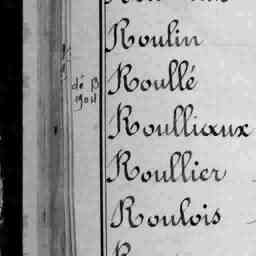 Roulin
dé B Roullé
Roulliaux
Roullier
Roulois